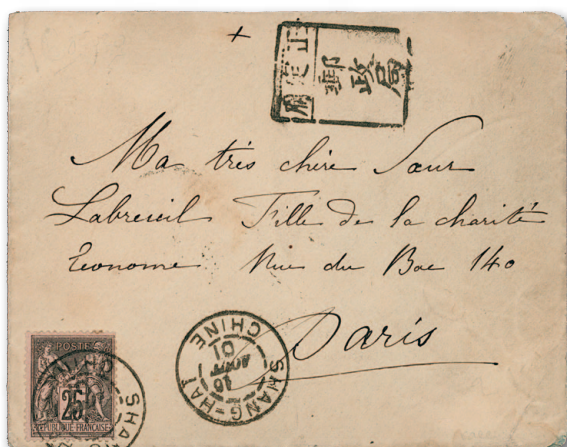 正定府
郵政局
Ma très chère Sœur
Labreuil Fille de la charité
Econome Rue du Bac 140
Paris
SHANG-HAI
16
AOUT
01
CHINE
POSTES
25
REPUBLIQUE FRANCAISE
SHANG
CHINE